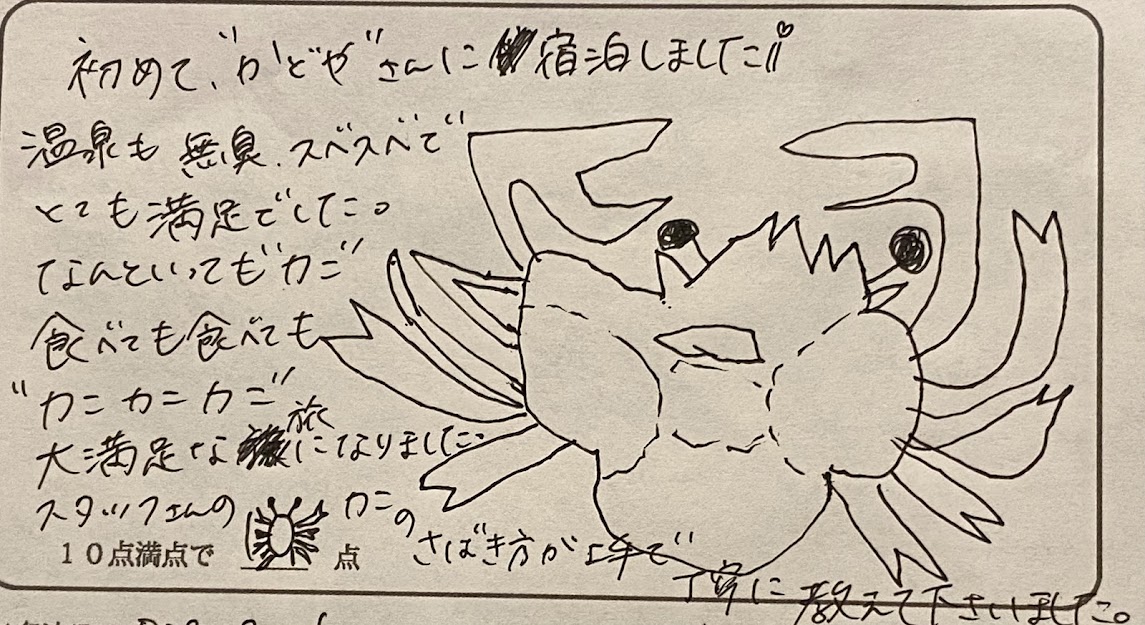 初めて、"かどや"さんに宿泊しました!!
温泉も無臭、スベスベで
とても満足でした。
なんといっても"カニ"
食べても食べても
"カニカニカニ"
大満足な旅になりました。
スタッフさんのカニのさばき方が上手で
丁寧に教えて下さいました。
10点満点で 点